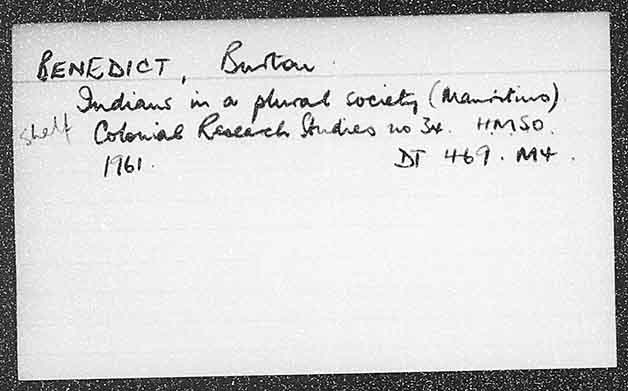 BENEDICT, Burton.
Indians in a plural society (Mauritius)
shelf Colonial Research Studies no 34. HMSO.
1961. DT 469. M4.